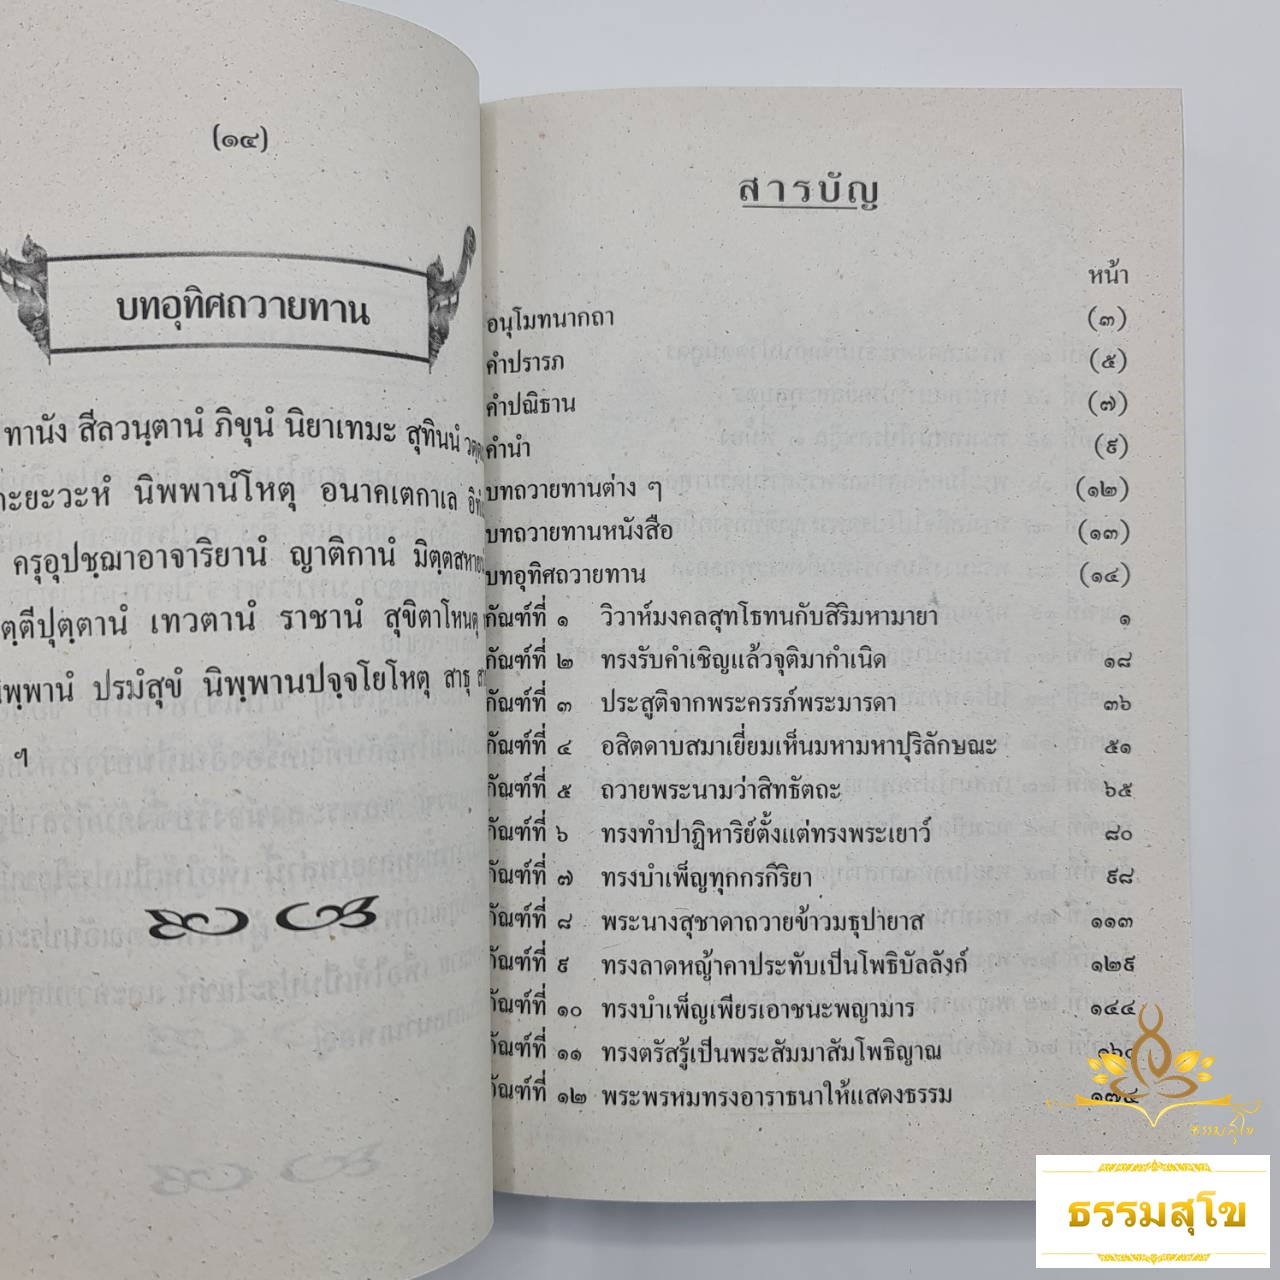 (๑๔)
บทอุทิศถวายทาน
ทานัง สีลวนฺตานํ ภิขุนํ นิยาเทมะ สุทินนํ
กะยะวะหํ นิพพานํโหตุ อนาคเตกาเล
ครุอุปชฺฌาอาจาริยานํ ญาติกานํ
เทวตานํ ราชานํ สุขิตาโหนตุ
ปรมํสุขํ นิพฺพานปจฺจโยโหตุ สาธุ
ๆ
สารบัญ
หน้า
อนุโมทนากถา (๓)
คำปรารภ (๕)
คำปณิธาน (๗)
คำนำ (๙)
บทถวายทานต่าง ๆ (๑๒)
บทถวายทานหนังสือ (๑๓)
บทอุทิศถวายทาน (๑๔)
กัณฑ์ที่ ๑ วิวาห์มงคลสุทโธทนกับสิริมหามายา ๑
กัณฑ์ที่ ๒ ทรงรับคำเชิญแล้วจุติมากำเนิด ๑๘
กัณฑ์ที่ ๓ ประสูติจากพระครรภ์พระมารดา ๓๖
กัณฑ์ที่ ๔ อสิตดาบสมาเยี่ยมเห็นมหามหาปุริลักษณะ ๕๑
กัณฑ์ที่ ๕ ถวายพระนามว่าสิทธัตถะ ๖๕
กัณฑ์ที่ ๖ ทรงทำปาฏิหาริย์ตั้งแต่ทรงพระเยาว์ ๘๐
กัณฑ์ที่ ๗ ทรงบำเพ็ญทุกกรกิริยา ๙๘
กัณฑ์ที่ ๘ พระนางสุชาดาถวายข้าวมธุปายาส ๑๑๓
กัณฑ์ที่ ๙ ทรงลาดหญ้าคาประทับเป็นโพธิบัลลังก์ ๑๒๙
กัณฑ์ที่ ๑๐ ทรงบำเพ็ญเพียรเอาชนะพญามาร ๑๔๔
กัณฑ์ที่ ๑๑ ทรงตรัสรู้เป็นพระสัมมาสัมโพธิญาณ ๑๖๐
กัณฑ์ที่ ๑๒ พระพรหมทรงอาราธนาให้แสดงธรรม ๑๗๔
ธรรมสุโข
ธรรมสุโข